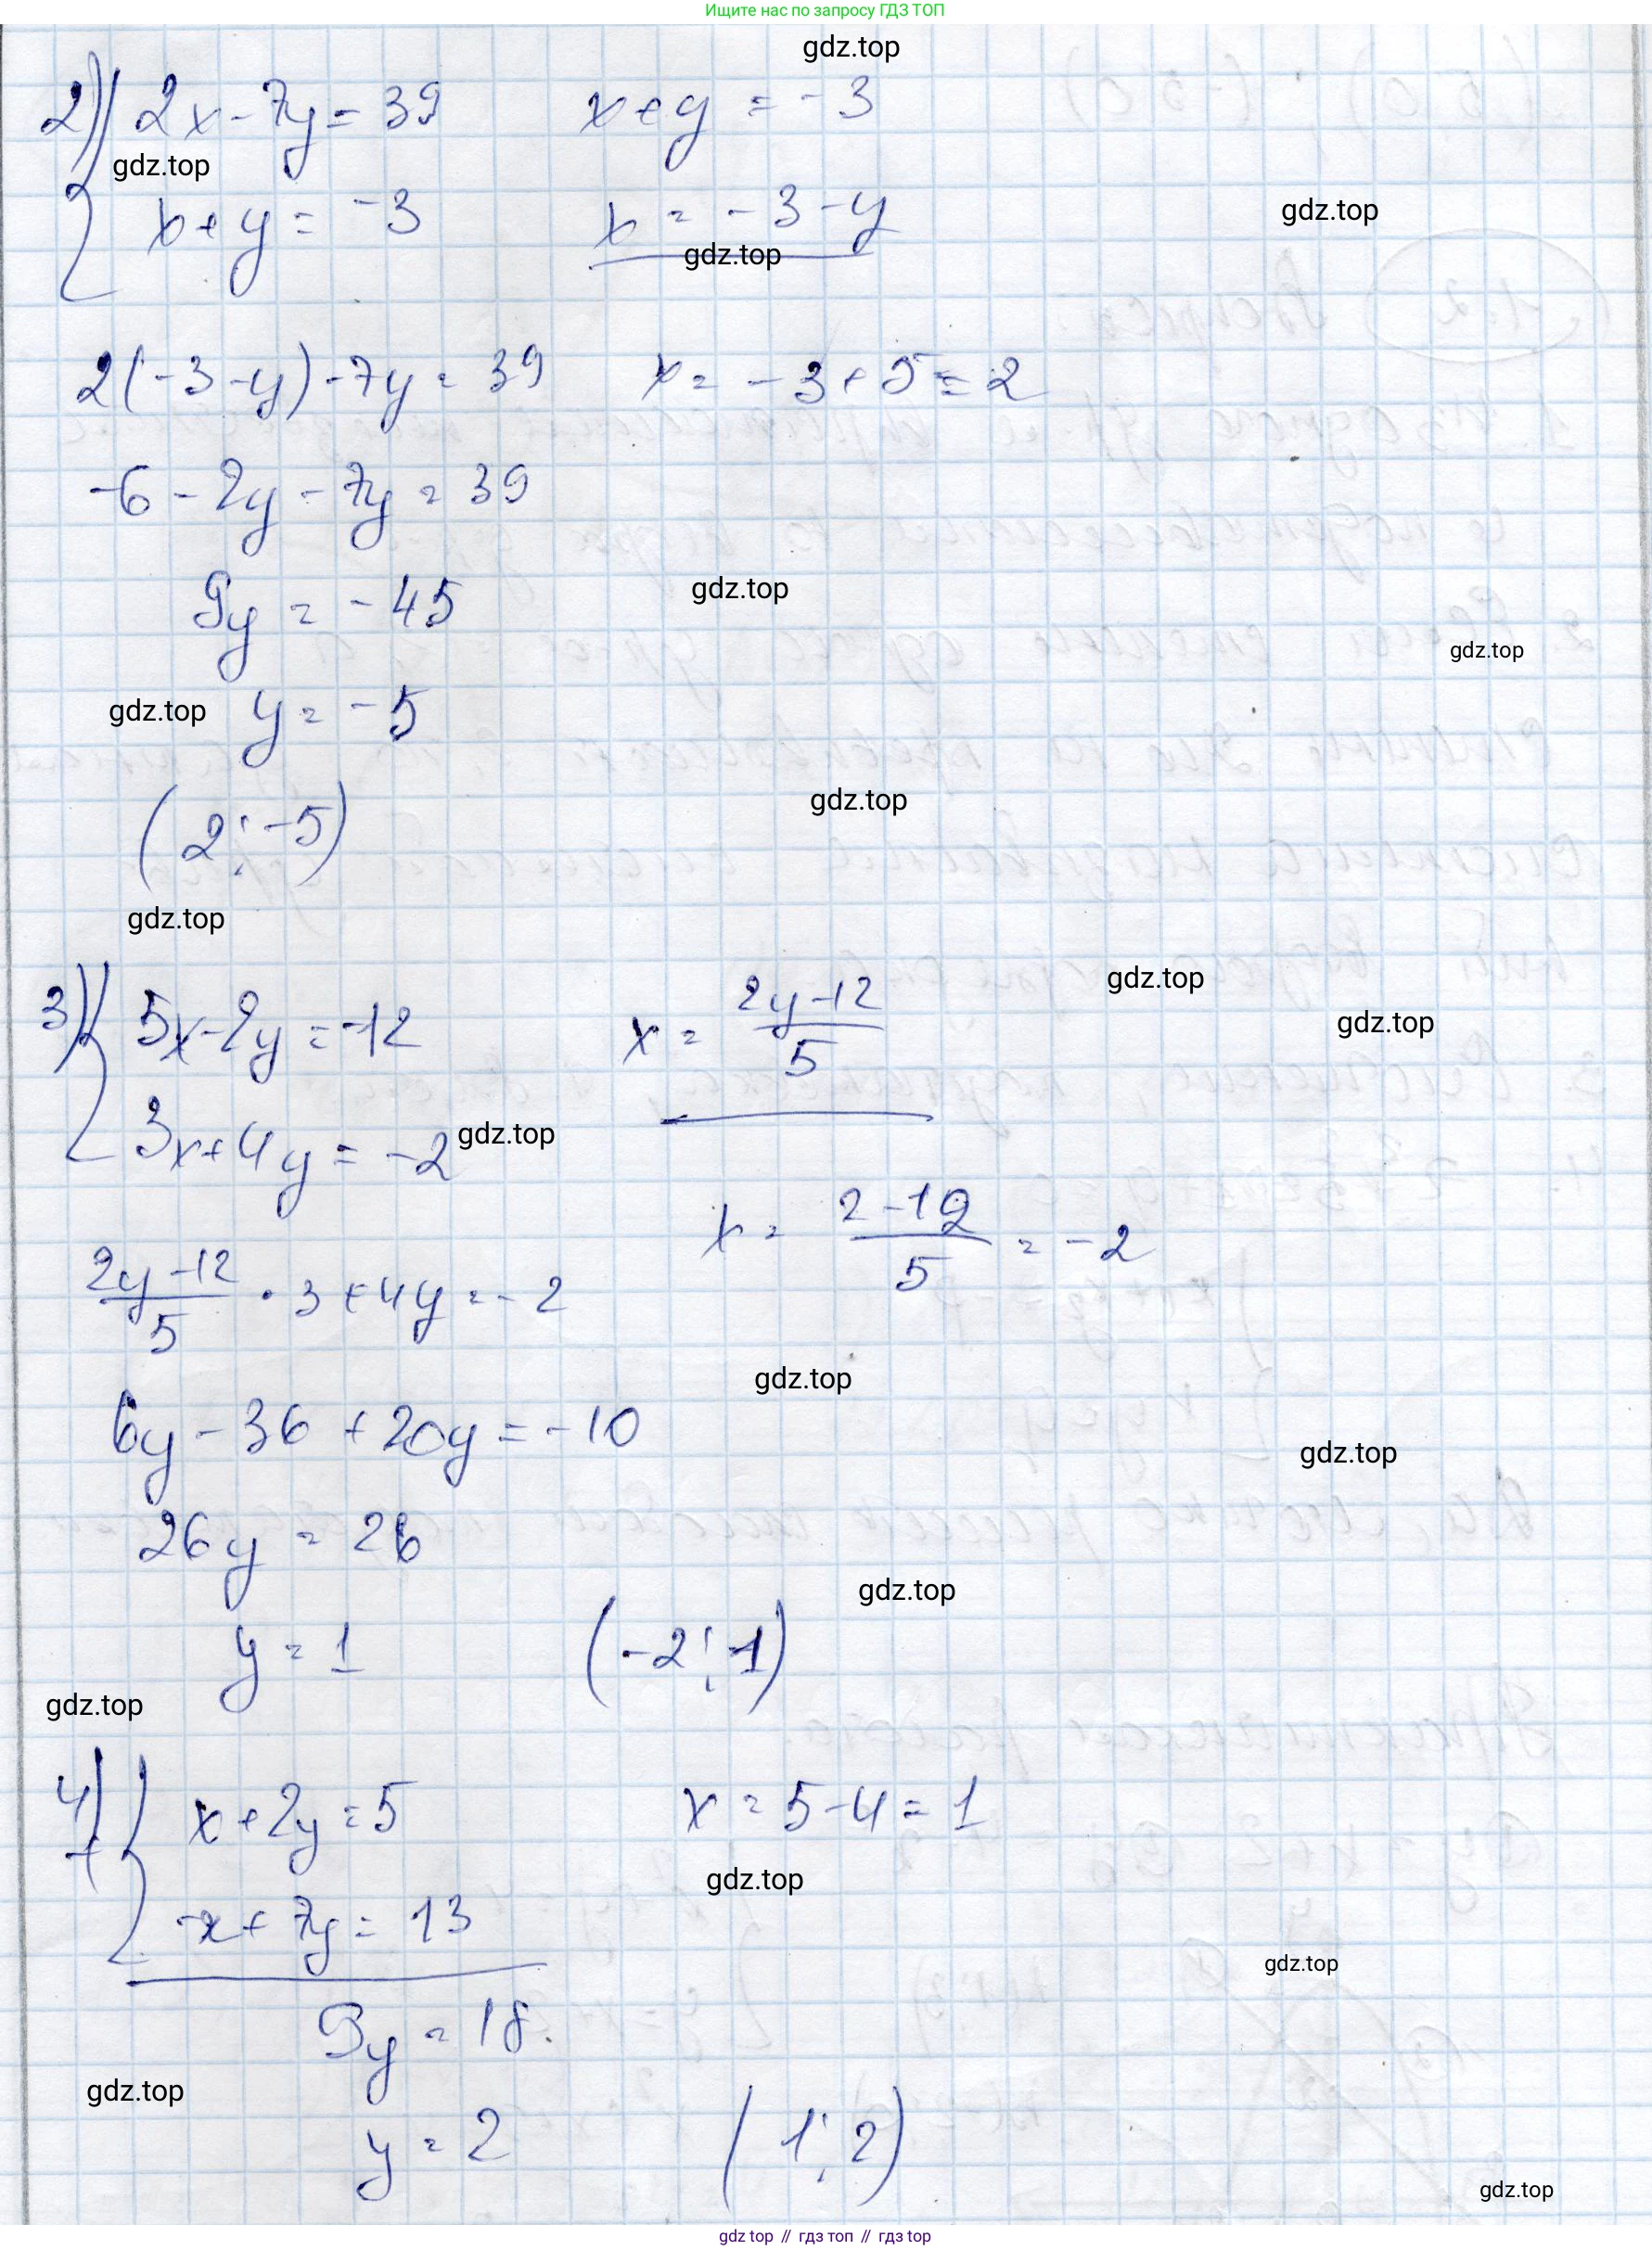 Ищите нас по запросу ГДЗ ТОП
gdz.top
2) { 2x - 7y = 39
x + y = -3
gdz.top
x + y = -3
x = -3 - y
gdz.top
gdz.top
2(-3 - y) - 7y = 39
x = -3 + 5 = 2
-6 - 2y - 7y = 39
9y = -45
gdz.top
gdz.top
gdz.top
y = -5
gdz.top
(2; -5)
gdz.top
3) { 5x - 2y = -12
x = (2y - 12)/5
gdz.top
gdz.top
3x + 4y = -2
gdz.top
x = (2 - 12)/5 = -2
(2y - 12)/5 · 3 + 4y = -2
gdz.top
6y - 36 + 20y = -10
gdz.top
26y = 26
gdz.top
y = 1
(-2; 1)
gdz.top
4) + { x + 2y = 5
x = 5 - 4 = 1
gdz.top
-x + 7y = 13
gdz.top
9y = 18.
gdz.top
y = 2
(1; 2)
gdz.top
gdz top // гдз топ // гдз top